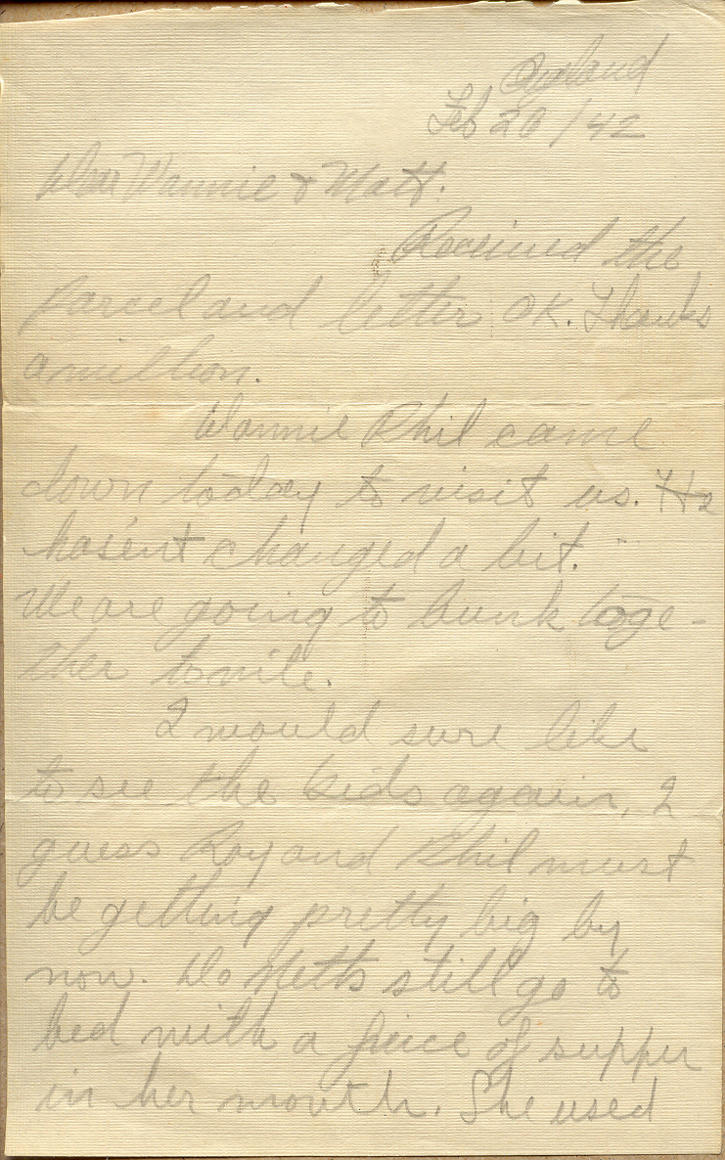 England
Feb 20/42
Dear Wannie & Matt.
Received the
Parcel and letter OK. Thanks
a million.
Wannie Phil came
down today to visit us. He
hasént changed a bit.
We are going to bunk toge-
ther tonite.
I would sure like
to see the kids again, I
guess Roy and Phil must
be getting pretty big by
now. Do still go to
bed with a piece of supper
in her mouth. She used